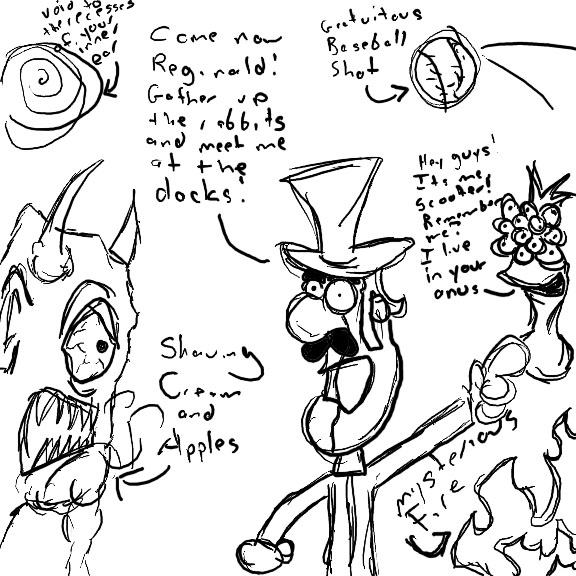 void to
the recesses
of your
inner
ear
Come now
Reginald!
Gather up
the rabbits
and meet me
at the
docks!
Gratuitous
Baseball
Shot
Hey guys!
Its me,
Scooter!
Remember
me?
I live
in your
anus
Shaving
Cream
and
Apples
mysterious
Fire